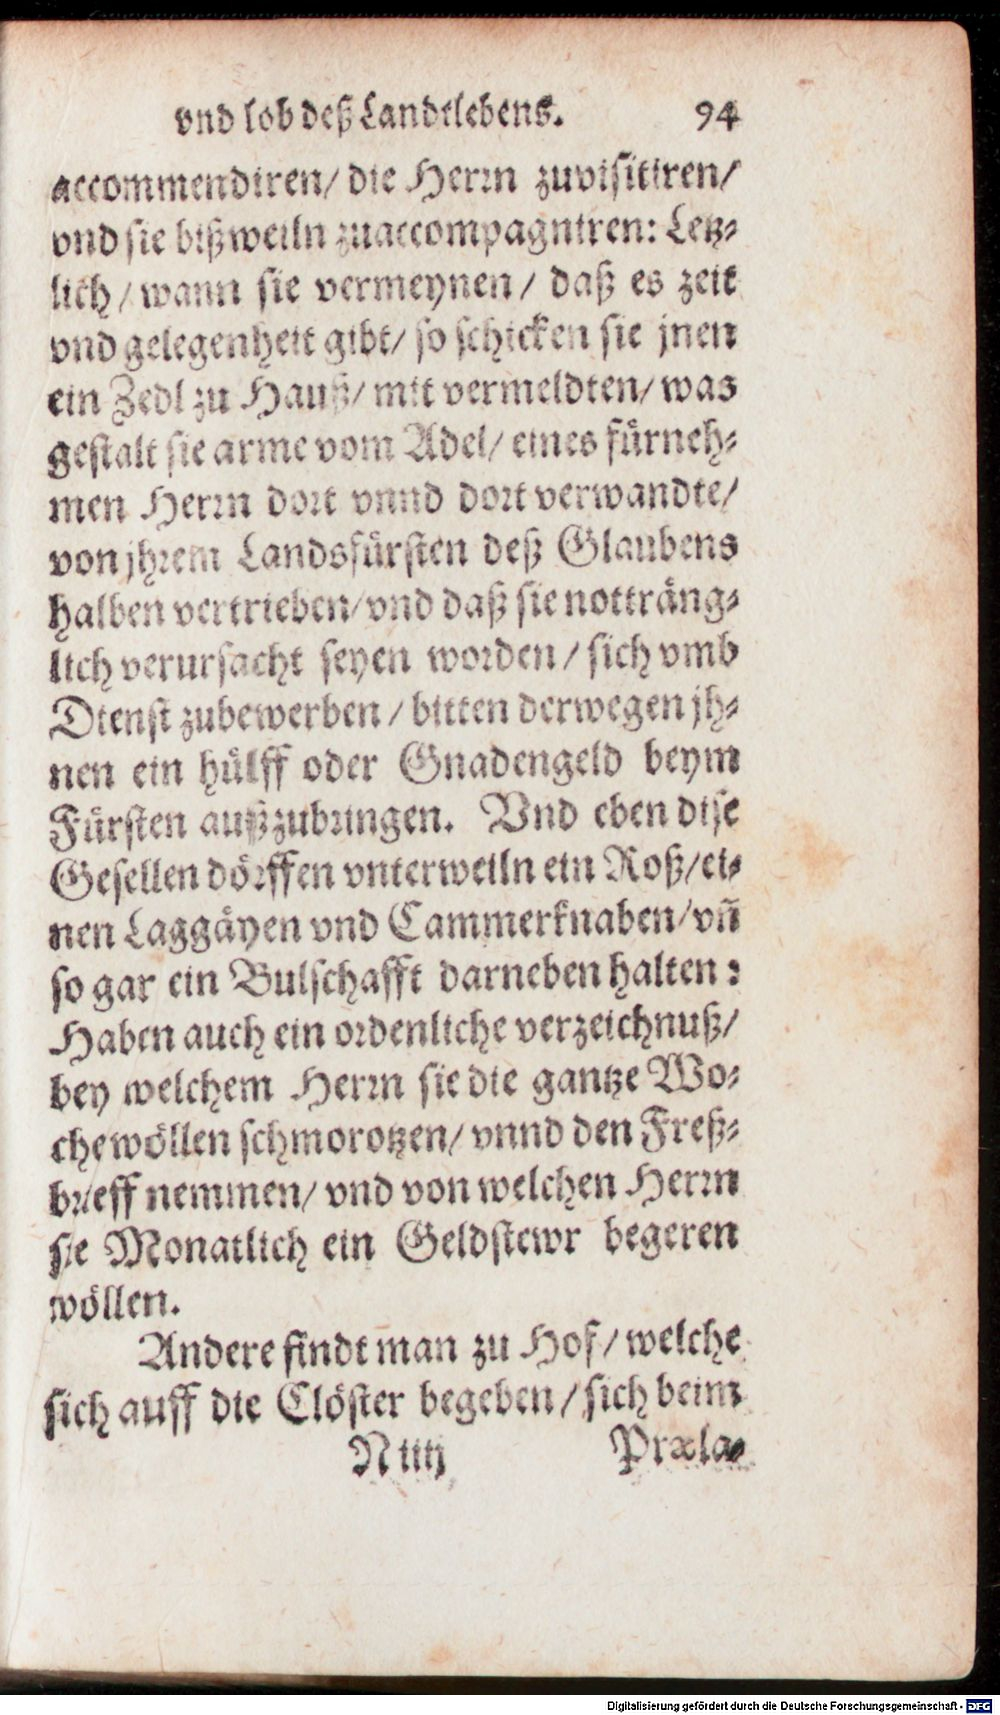 vnd lob deß Landtlebens. 94
accommendiren/ die Herrn zuvisitiren/
vnd sie bißweiln zuaccompagniren: Letz-
lich / wann sie vermeynen / daß es zeit
vnd gelegenheit gibt/ so schicken sie jnen
ein Zedl zu Hauß/ mit vermeldten/ was
gestalt sie arme vom Adel/ eines fürneh-
men Herrn dort vnnd dort verwandte/
von jhrem Landsfürsten deß Glaubens
halben vertrieben/ vnd daß sie notträng-
lich verursacht seyen worden / sich vmb
Dienst zubewerben / bitten derwegen jh-
nen ein hülff oder Gnadengeld beym
Fürsten außzubringen. Vnd eben dise
Gesellen dörffen vnterweiln ein Roß/ ei-
nen Laggäyen vnd Cammerknaben/ vn̄
so gar ein Bulschafft darneben halten:
Haben auch ein ordenliche verzeichnuß/
bey welchem Herrn sie die gantze Wo-
che wöllen schmorotzen/ vnnd den Freß-
brieff nemmen/ vnd von welchen Herrn
sie Monatlich ein Geldstewr begeren
wöllen.
Andere findt man zu Hof/ welche
sich auff die Clöster begeben / sich beim
N iiij Præla-
Digitalisierung gefördert durch die Deutsche Forschungsgemeinschaft - DFG